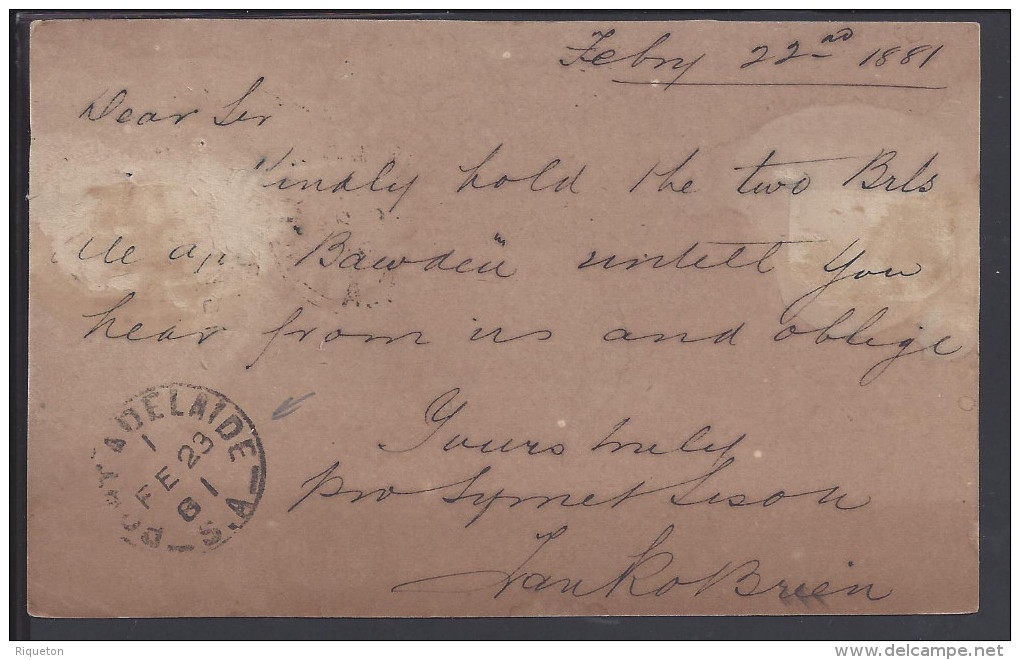 Febry 22nd 1881
Dear Sir
Kindly hold the two Brls
"Bawden" untill you
hear from us and oblige
Yours truly
pro
O Brien
PORT ADELAIDE
1
FE 23
81
S.A
Riqueton
delcampe.net